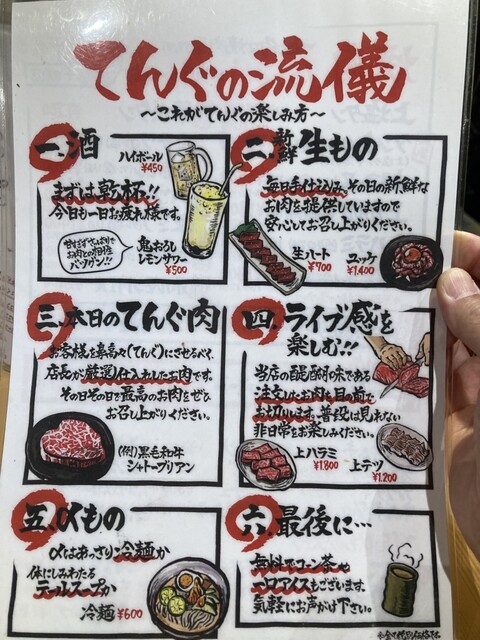 てんぐの流儀
〜これがてんぐの楽しみ方〜
一、酒
ハイボール
¥450
まずは乾杯!!
今日も一日お疲れ様です。
甘すぎずさっぱりで
お肉との相性
バツグン!!
鬼おろし
レモンサワー
¥500
二、新鮮生もの
毎日手仕込み、その日の新鮮な
お肉を提供していますので
安心してお召し上がりください。
生ハート
¥700
ユッケ
¥1,400
三、本日のてんぐ肉
お客様を鼻高々(てんぐ)にさせるべく、
店長が厳選仕入れしたお肉です。
その日その日で最高のお肉をぜひ
お召し上がりください。
(例)黒毛和牛
シャトーブリアン
四、ライブ感を
楽しむ!!
当店の醍醐味である
注文したお肉を目の前で
お切りします。普段は見れない
非日常をお楽しみください。
上ハラミ
¥1,800
上テツ
¥1,200
五、〆もの
〆はあっさり冷麺か
体にしみわたる
テールスープか
冷麺 ¥600
六、最後に…
無料でコーン茶や
一口アイスもございます。
気軽にお声がけ下さい。